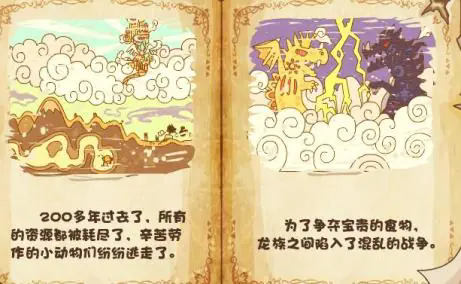 200多年过去了，所有
的资源都被耗尽了，辛苦劳
作的小动物们纷纷逃走了。
为了争夺宝贵的食物，
龙族之间陷入了混乱的战争。